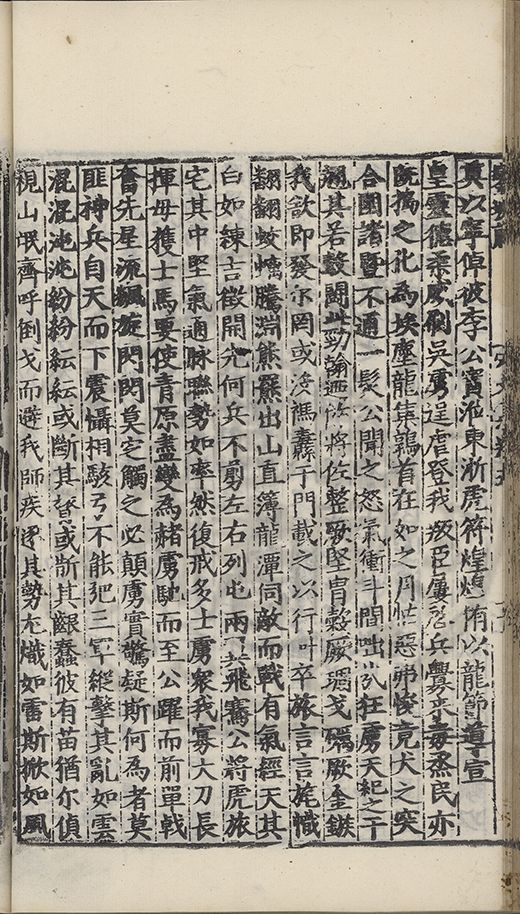 奠以寧倬彼李公實涖東浙虎符煌煌侑以龍節導宣
皇靈德柔威制吳虜逞虐登我叛臣屢懲兵釁㐫毒烝民亦
既撝之化為埃塵龍集鶉首在如之月怙惡弗悛竞犬之突
合圍諸暨不通一髮公聞之怒氣衝斗間咄爾狂虜天紀之干
其若鬪此勁翰迺將佐整堅胄敹厥戈礪厥金鏃
我欲即發尔罔或後禡纛于門載之以行吁卒旅言言旄幟
翻翻蛟蟠騰淵熊羆出山直簿龍潭伺敵而戰有氣經天其
白如練吉徵開先何兵不剪左右列屯兩飛騫公將虎旅
宅其中堅氣通脉聯勢如率然復戒多士虜衆我寡大刀長
揮毋獲士馬要使青原盡變為赭虜馳而至公躍而前單戟
奮先星流飆旋閃閃莫定觸之必顛虜實驚疑斯何為者莫
匪神兵自天而下震懾相駭弓不能把三軍縱擊其亂如雲
混混沌沌紛紛紜紜或斷其脊或斮其齦蠢彼有苗猶尔偵
視山氓齊呼倒戈而避我師疾逐其勢尤熾如雷斯掀如風